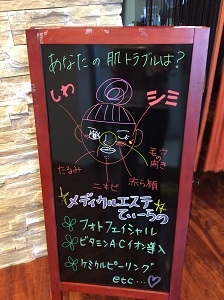 あなたの肌トラブルは?
しわ
シミ
毛穴の開き
たるみ
ニキビ
赤ら顔
メディカルエステ
でぃーうの
フォトフェイシャル
ビタミンACイオン導入
ケミカルピーリング
etc...